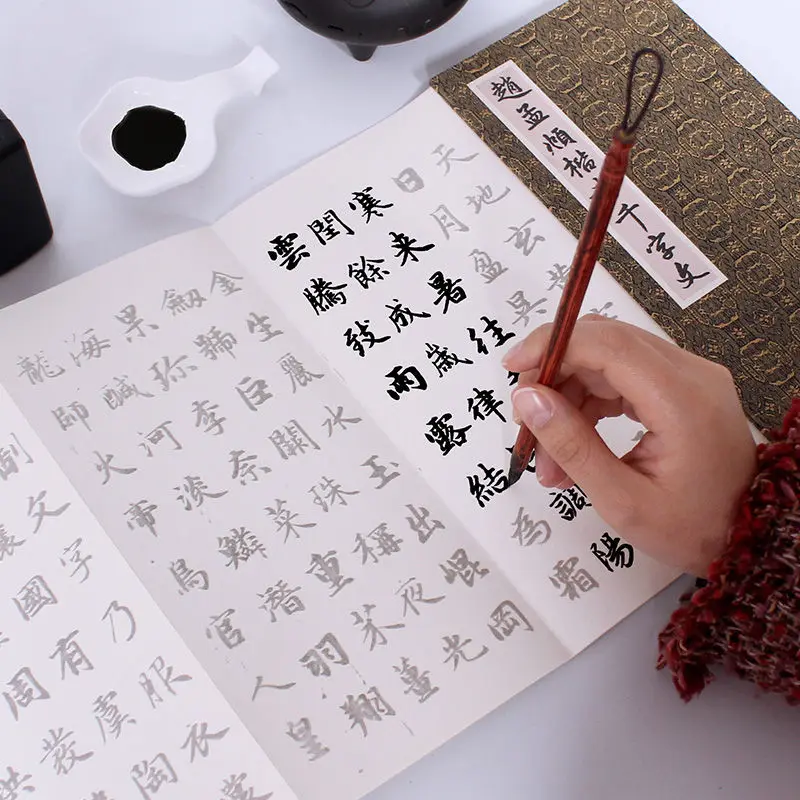 趙孟頫楷千字文
天地玄
日月盈昃
寒来暑往
閏餘成歲律調陽
雲騰致雨露結為霜
金生麗水玉出崐岡
劔號巨闕珠稱夜光
果珎李柰菜重芥薑
海鹹河淡鱗潛羽翔
龍師火帝鳥官人皇
制文字乃服衣裳
讓國有虞陶
周發
拱